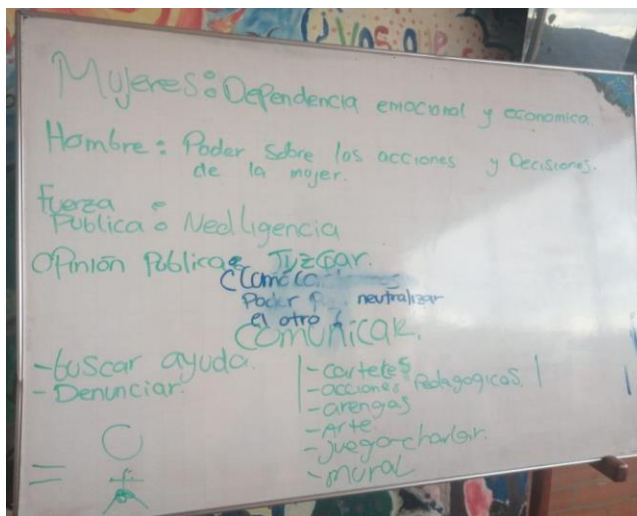 Mujeres: Dependencia emocional y economica.
Hombre: Poder sobre las acciones y Decisiones.
de la mujer.
Fuerza
Publica: Nedligencia
Opinión Publica: Juzgar.
Poder neutralizar
el otro
Comunicar.
-buscar ayuda.
-Denunciar.
-carteles
-acciones Pedagogicas.
-arengas
-Arte
-juego-charlar.
-mural